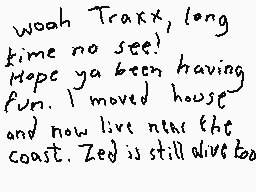 woah Traxx, long
time no see!
Hope ya been having
fun. I moved house
and now live near the
coast. Zed is still alive too